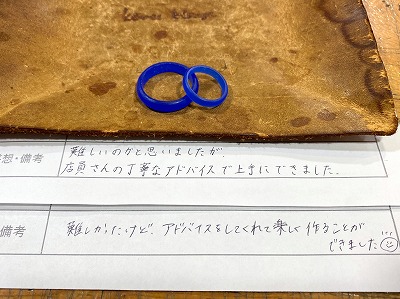 感想・備考
難しいのかと思いましたが、
店員さんの丁寧なアドバイスで上手にできました。
備考
難しかったけど、アドバイスをしてくれて楽しく作ることが
できました